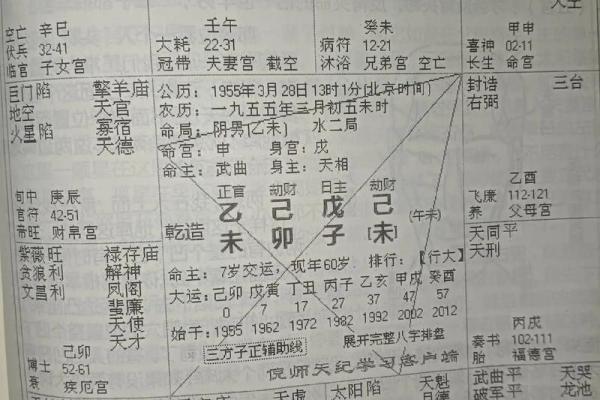 空亡 辛巳
伏兵 32-41
临官 子女宫
壬午
大耗 22-31
冠带 夫妻宫 截空
癸未
病符 12-21
沐浴 兄弟宫 空亡
甲申
喜神 02-11
长生 命宫
巨门陷 擎羊庙
地空 天官
火星陷 寡宿
天德
旬中 庚辰
官符 42-51
帝旺 财帛宫
公历：1955年3月28日13时1分(北京时间)
农历：一九五五年三月初五未时
命局：阴男(乙未) 水二局
命宫：申 身宫：戌
命主：武曲 身主：天相
正官 劫财 日主 劫财
乙 己 戊 己
乾造 (午未)
未 卯 子 [未]
命主：7岁交运，现年60岁. 排行：【行大】
大运：己卯 戊寅 丁丑 丙子 乙亥 甲戌 癸酉
0 7 17 27 37 47 57
始于：1955 1962 1972 1982 1992 2002 2012
三方子正辅助线
展开完整八字排盘
倪师天纪学习客户端
封诰 三台
右弼
乙酉
飞廉 112-121
养 父母宫
紫薇旺 禄存庙
贪狼利 解神
文昌利 凤阁
蜚廉
天使
天才
己卯
博士 52-61
衰 疾厄宫
天同平
天刑
丙戌
奏书 102-111
胎 福德宫
天虚
太阳陷 天魁
月德
武曲平 天哭
破军平 龙池